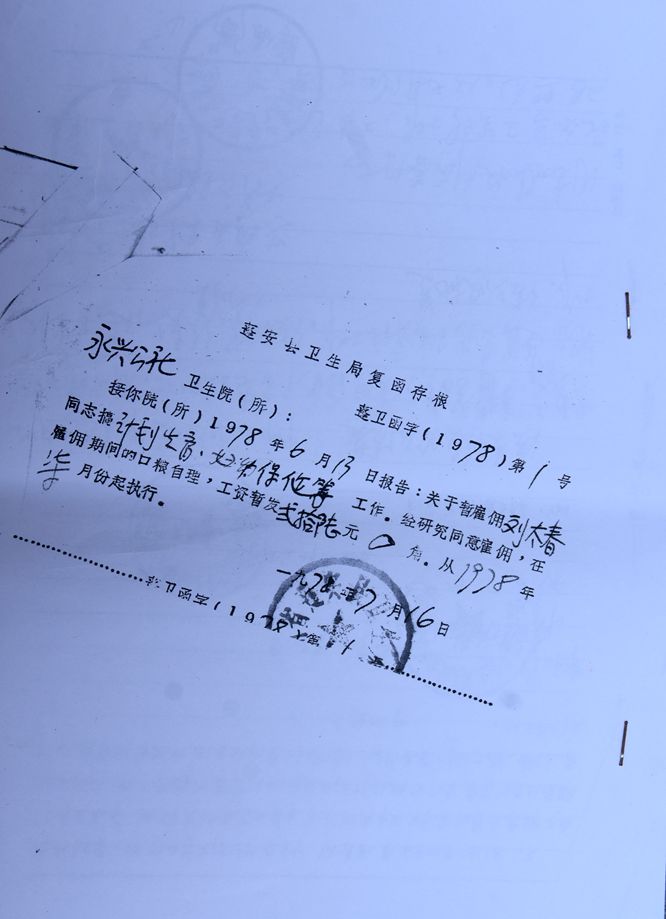 蓬安县卫生局复函存根
蓬卫函字(1978)第1号
永兴公社 卫生院(所):
接你院(所)1978年6月13日报告:关于暂雇佣刘大春
同志搞计划生育、妇幼保健等工作。经研究同意雇佣,在
雇佣期间的口粮自理,工资暂发贰拾陆元0角。从1978年
月份起执行。
一九78年7月16日
蓬卫函字(1978)第1号